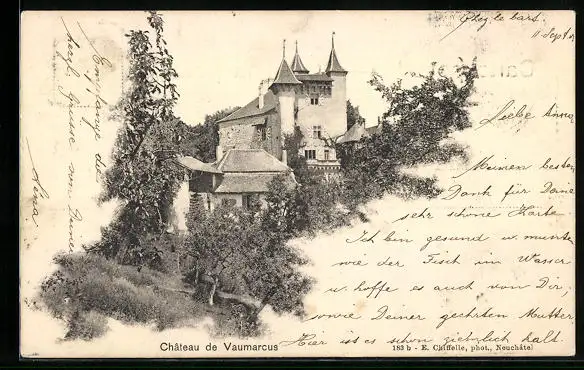 Chez le bart,
11 Sept.
Liebe Anna
Meinen besten
Dank für Deine
sehr schöne Karte.
Ich bin gesund u. munter
wie der Fisch im Wasser
u. hoffe es auch von Dir,
sowie Deiner geehrten Mutter
Hier ist es schon ziemlich kalt.
Empfange die
herzl. Grüsse von Deiner
Château de Vaumarcus
183 b - E. Chiffelle, phot., Neuchâtel